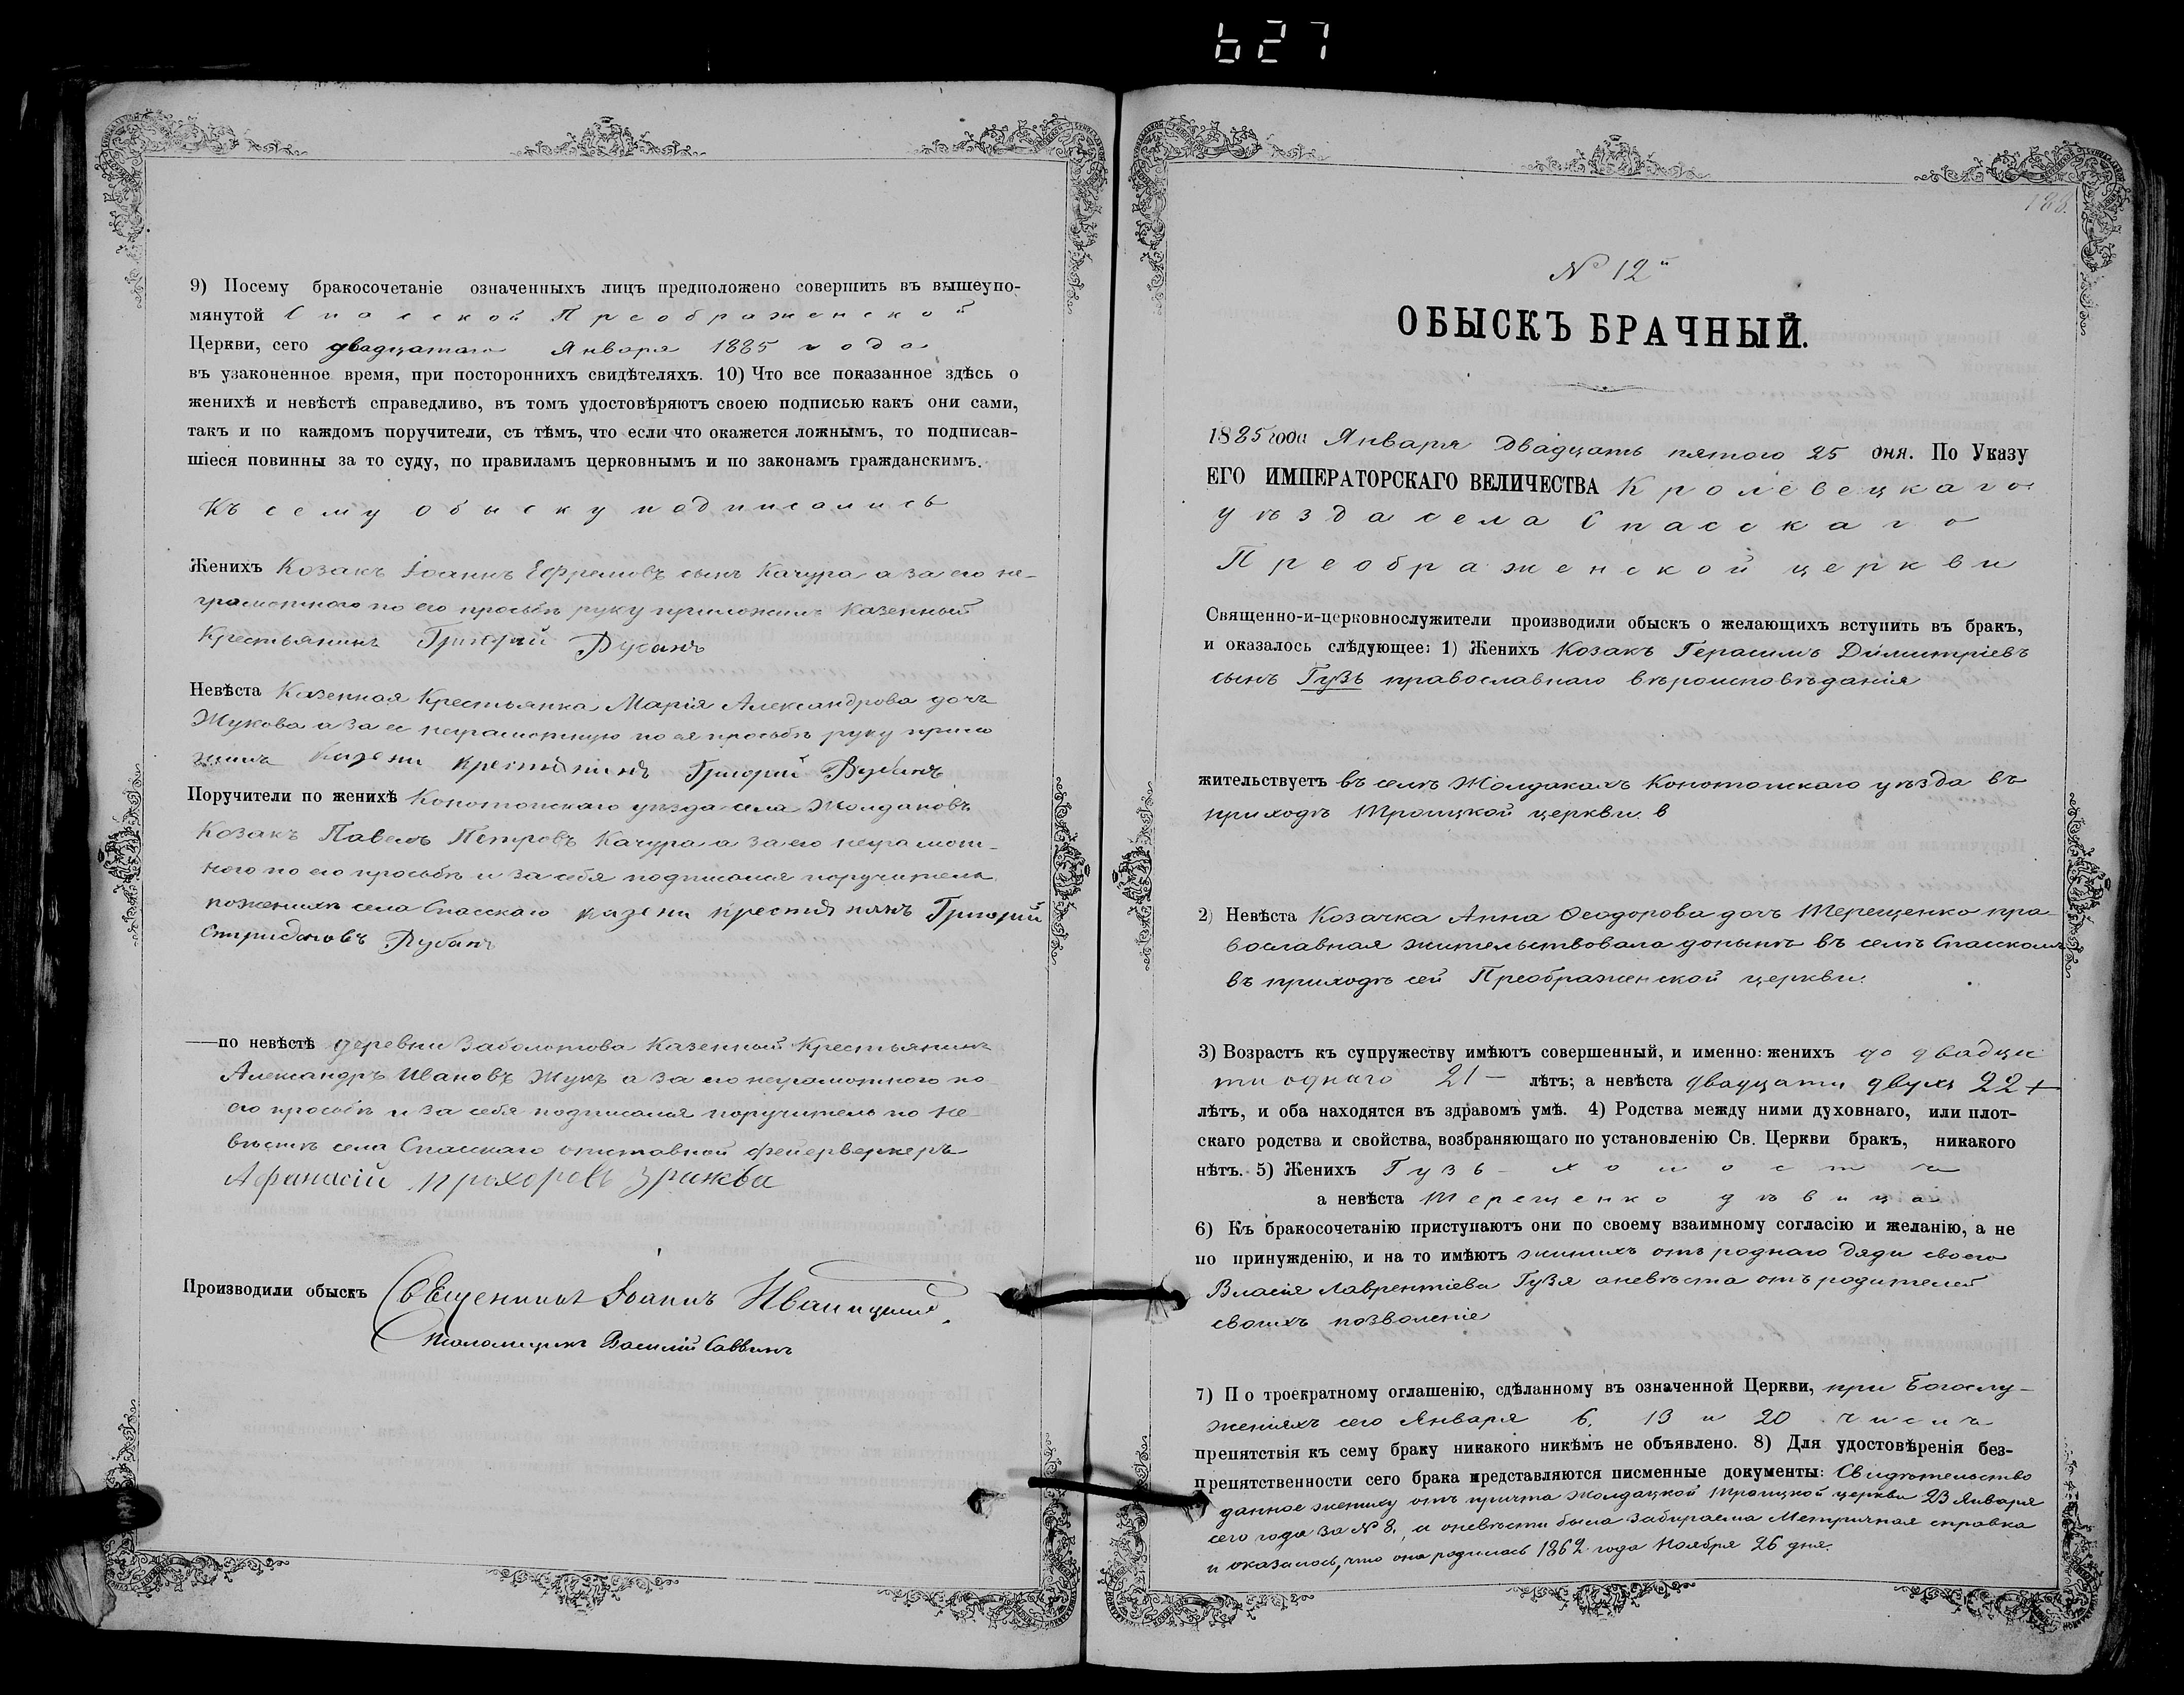 627
9) Посему бракосочетаніе означенныхъ лицъ предположено совершить въ вышеупо-
мянутой Спасской Преображенской
Церкви, сего двадцатаго Января 1885 года
въ узаконенное время, при постороннихъ свидѣтеляхъ. 10) Что все показанное здѣсь о
женихѣ и невѣстѣ справедливо, въ томъ удостовѣряютъ своею подписью какъ они сами,
такъ и по каждомъ поручители, съ тѣмъ, что если что окажется ложнымъ, то подписав-
шіеся повинны за то суду, по правиламъ церковнымъ и по законамъ гражданскимъ.
Къ сему обыску подписались
Женихъ Козакъ Іоаннъ Ефремовъ сынъ Качура а за его не-
грамотного по его прозьбѣ руку приложилъ Казенный
Крестьянинъ Григорій Рубанъ
Невѣста Казенная Крестьянка Марія Александрова дочь
Жукова а за ее неграмотную по ея прозьбѣ руку прило
жилъ казени крестянинъ Григорий Рубанъ
Поручители по женихѣ Конотопскаго уѣзда села Жолдаковъ
Козакъ Павелъ Петровъ Качура а за его неграмот-
ного по его прозьбѣ и за себя подписался поручитель
по женихѣ села Спасскаго казени крестянинъ Григорий
Спридоновъ Рубанъ
— по невѣстѣ деревни Заболотова Казенный Крестьянинъ
Александръ Ивановъ Жукъ а за его неграмотного по
его прозьбѣ и за себя подписался поручитель по не-
вѣстѣ села Спасскаго отставной фейерверкеръ
Афанасій Прохоровъ
Производили обыскъ Священникъ Іоаннъ Иваницкій
Псаломщикъ Василій Саввинъ
188.
№ 12й
ОБЫСКЪ БРАЧНЫЙ.
1885 года Января двадцать пятого 25 дня. По Указу
ЕГО ИМПЕРАТОРСКАГО ВЕЛИЧЕСТВА Кролевецкаго
уѣзда села Спасскаго
Преображенской церкви
Священно-и-церковнослужители производили обыскъ о желающихъ вступить въ бракъ,
и оказалось слѣдующее: 1) Женихъ Козакъ Герасимъ Димитріевъ
сынъ Гузь православнаго вѣроисповѣданія
жительствуетъ въ селѣ Жолдакахъ Конотопскаго уѣзда въ
приходѣ Троицкой церкви. в
2) Невѣста Козачка Анна Ѳеодорова дочь Терещенко пра-
вославная жительствовала донынѣ въ селѣ Спасскомъ
въ приходѣ сей Преображенской церкви.
3) Возрастъ къ супружеству имѣютъ совершенный, и именно: женихъ до двадца
ти одного 21 — лѣтъ; а невѣста двадцати двухъ 22 +
лѣтъ, и оба находятся въ здравомъ умѣ. 4) Родства между ними духовнаго, или плот-
скаго родства и свойства, возбраняющаго по установленію Св. Церкви бракъ, никакого
нѣтъ. 5) Женихъ Гузь - холостъ
а невѣста Терещенко дѣвица
6) Къ бракосочетанію приступаютъ они по своему взаимному согласію и желанію, а не
по принужденію, и на то имѣютъ женихъ отъ роднаго дяди своего
Власія Лаврентіева Гузя а невѣста отъ родителей
своихъ позволеніе
7) По троекратному оглашенію, сдѣланному въ означенной Церкви, при Богослу-
женіяхъ сего Января 6. 13 и 20 числъ
препятствія къ сему браку никакого никѣмъ не объявлено. 8) Для удостовѣренія без-
препятственности сего брака представляются писменные документы: Свидѣтельство
данное жениху отъ причта Жолдацкой Троицкой церкви 23 Января
сего года за № 8, а о невѣсти была забираема Метричная справка
и оказалось, что она родилась 1862 года Ноября 26 дня.